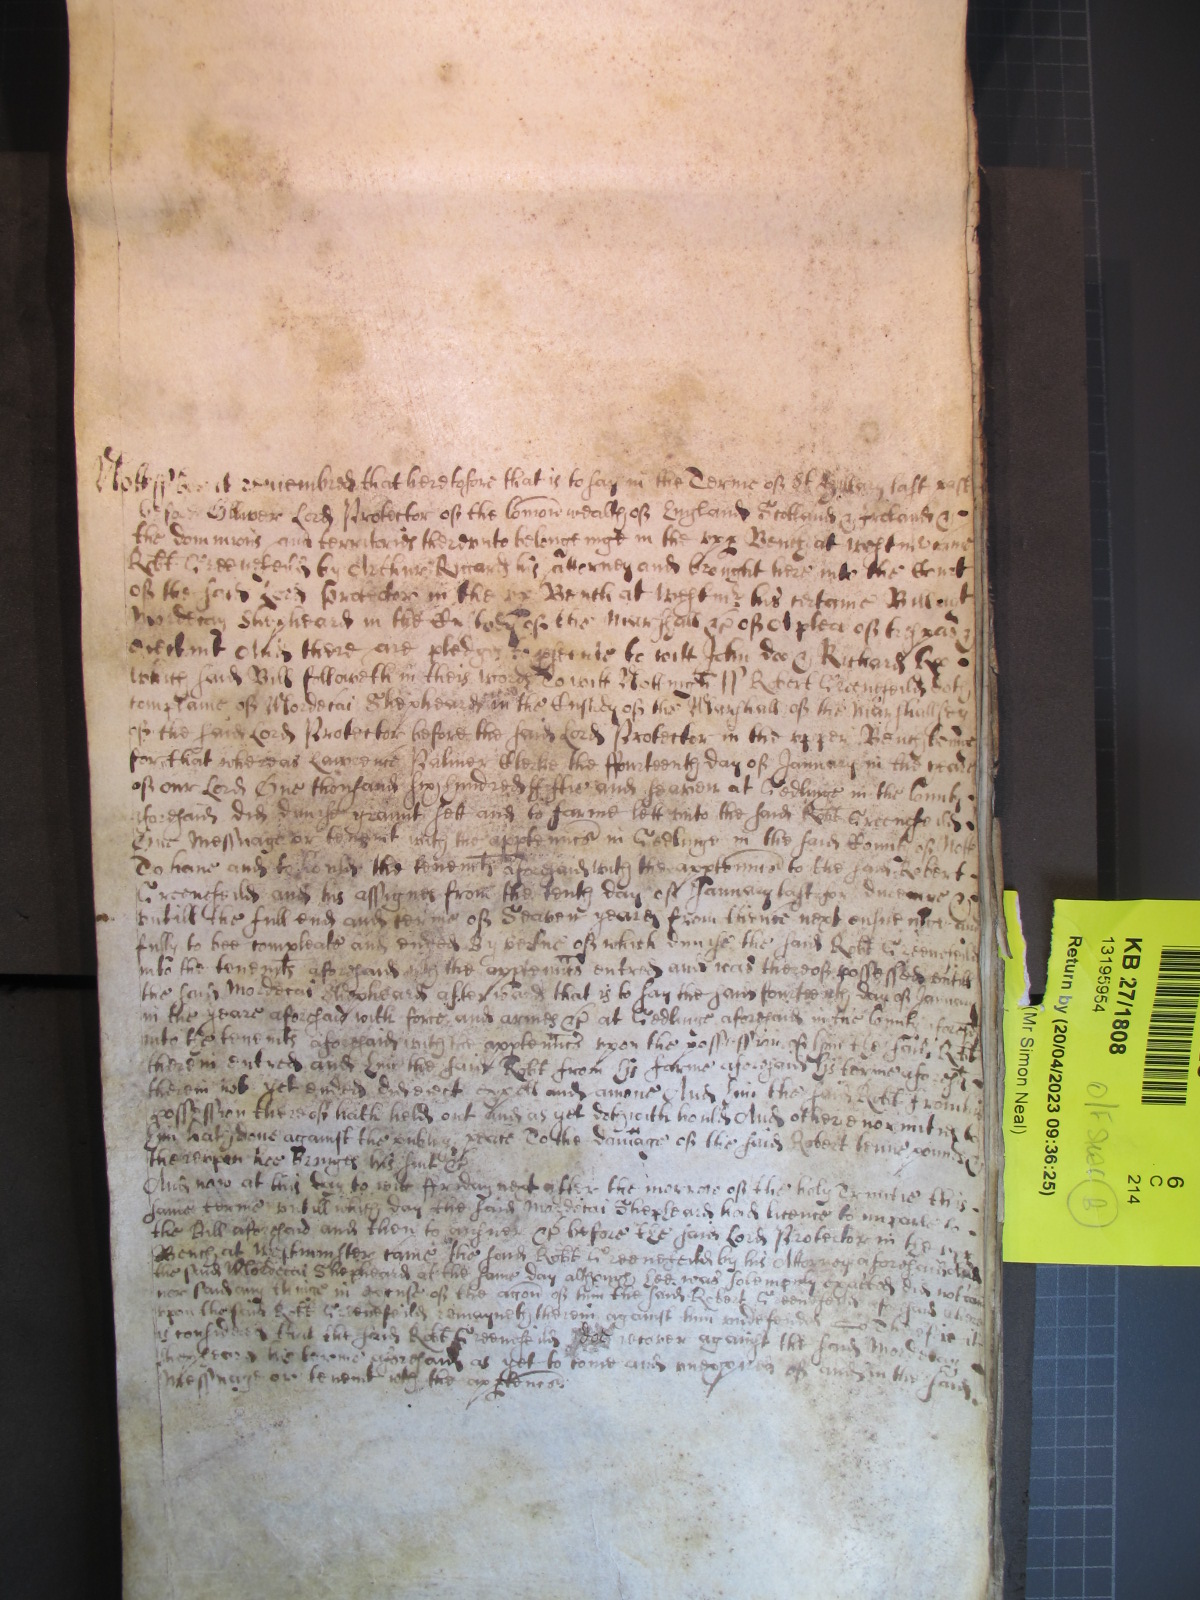 Notts ss Bee it remembred that heretofore that is to say in the Terme of St Hillary last past
before Oliver Lord Protector of the Comonwealth of England Scotland & Ireland &
the dominions and territories thereunto belonginge in the upp Bench at Westm came
Robt Greenefeild by Arthur Ricard his Attorney and brought here into the Court
of the said Lord Protector in the upp Bench at Westmr his certaine Bill agt
Mordecay Shepheard in the Custody of the Marshall &c of A plea of trespas &
Eiectmt And there are pledges to prosecute to witt John doe & Richard Roe
which said Bill followeth in theis words To witt Nottingh ss Robert Greenefeild doth
complaine of Mordecai Shepheard in the Custody of the Marshall of the Marshallsey
of the said Lord Protector before the said Lord Protector in the upper Bench beinge
for that whereas Lawrence Palmer Clerke the fourteenth day of January in the yeare
of our Lord One thousand six hundred fiftie and seaven at Gedlinge in the County
aforesaid did demise graunt sett and to farme lett unto the said Robt Greenefeild
One Messuage or tenemt with the apptenncs in Gedlinge in the said County of Nott
To have and to hould the tenemts aforesaid with the apptenncs to the said Robert
Greenefeild and his assignes from the tenth day of January last
untill the full end and terme of Seaven yeares from thence next ensueinge and
fully to bee compleate and ended By vertue of which demise the said Robt Greenefeild
into the tenemts aforesaid with the apptenncs entred and was thereof possessed untill
the said Mordecai Shepheard afterward that is to say the said fourteenth day of January
in the yeare aforesaid with force and armes &c at Gedlinge aforesaid in the County aforesd
into the tenemts aforesaid with the apptenncs upon the possession of him the said Robt
therein entred and him the said Robt from his farme aforesaid his terme aforesd
therein not yet ended did eiect expell and amove And him the said Robt from his
possession thereof hath held out and as yet doth hould And other enormities to
him hath done against the publiq peace To the damage of the said Robert tenne pounds &
thereupon hee bringes his suit &c
And now at this day to witt fryday next after the morrow of the holy Trinitie this
same terme untill which day the said Mordecai Shepheard had licence to imparle to
the Bill aforesaid and then to answer &c before the said Lord Protector in the upp
Bench at Westminster came the said Robt Greenefeild by his Attorney aforesaid And
the said Mordecai Shepheard at the same day although hee was solemnly exacted did not come
nor said any thinge in of the accon of him the said Robert Greenefeild aforesaid
upon the said Robt Greenefeild remayneth therein against him undefended Therefore it
is considered that the said Robt Greenefeild doe recover against the said Mordecay
Shepheard his terme aforesaid as yet to come and unexpired of and in the said
Messuage or tenemt with the apptences
KB 27/1808
13195954
Return by (20/04/2023 09:36:25)
(Mr Simon Neal)
6
C
214